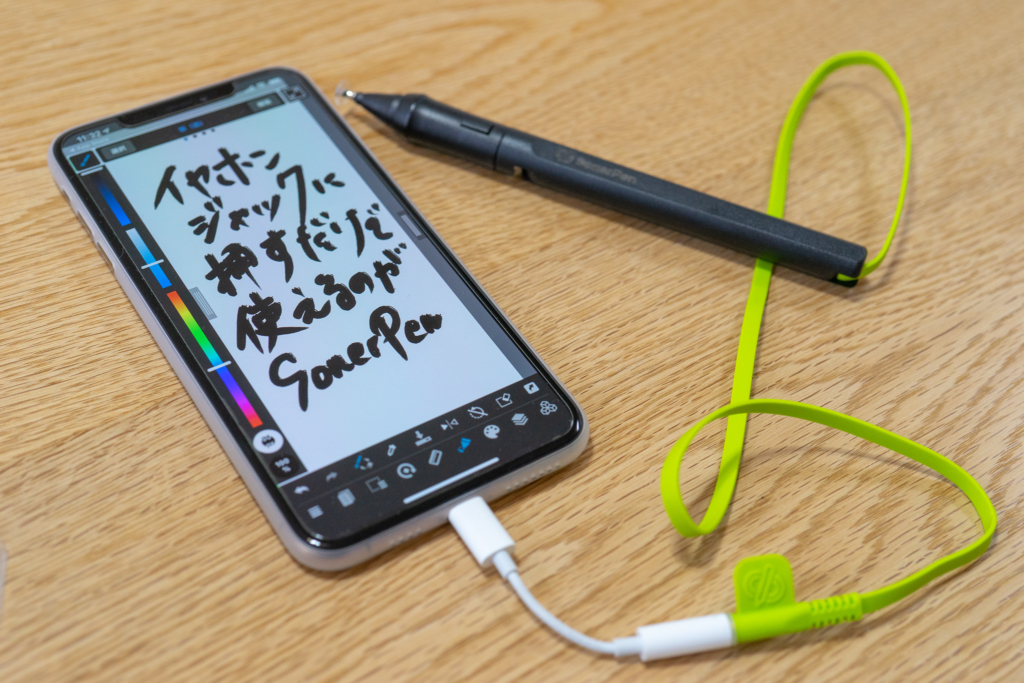 11:22
イヤホン
ジャックに
押すだけで
使えるのが
SonerPen
SonarPen